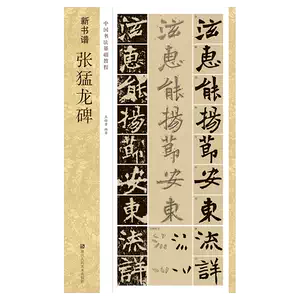 新书谱
张猛龙碑
中国书法基础教程
泫 泫 泫
惠 惠 惠
能 能 能
揚 揚 揚
節 節 節
安 安 安
東 東 東
流 流
詳 詳